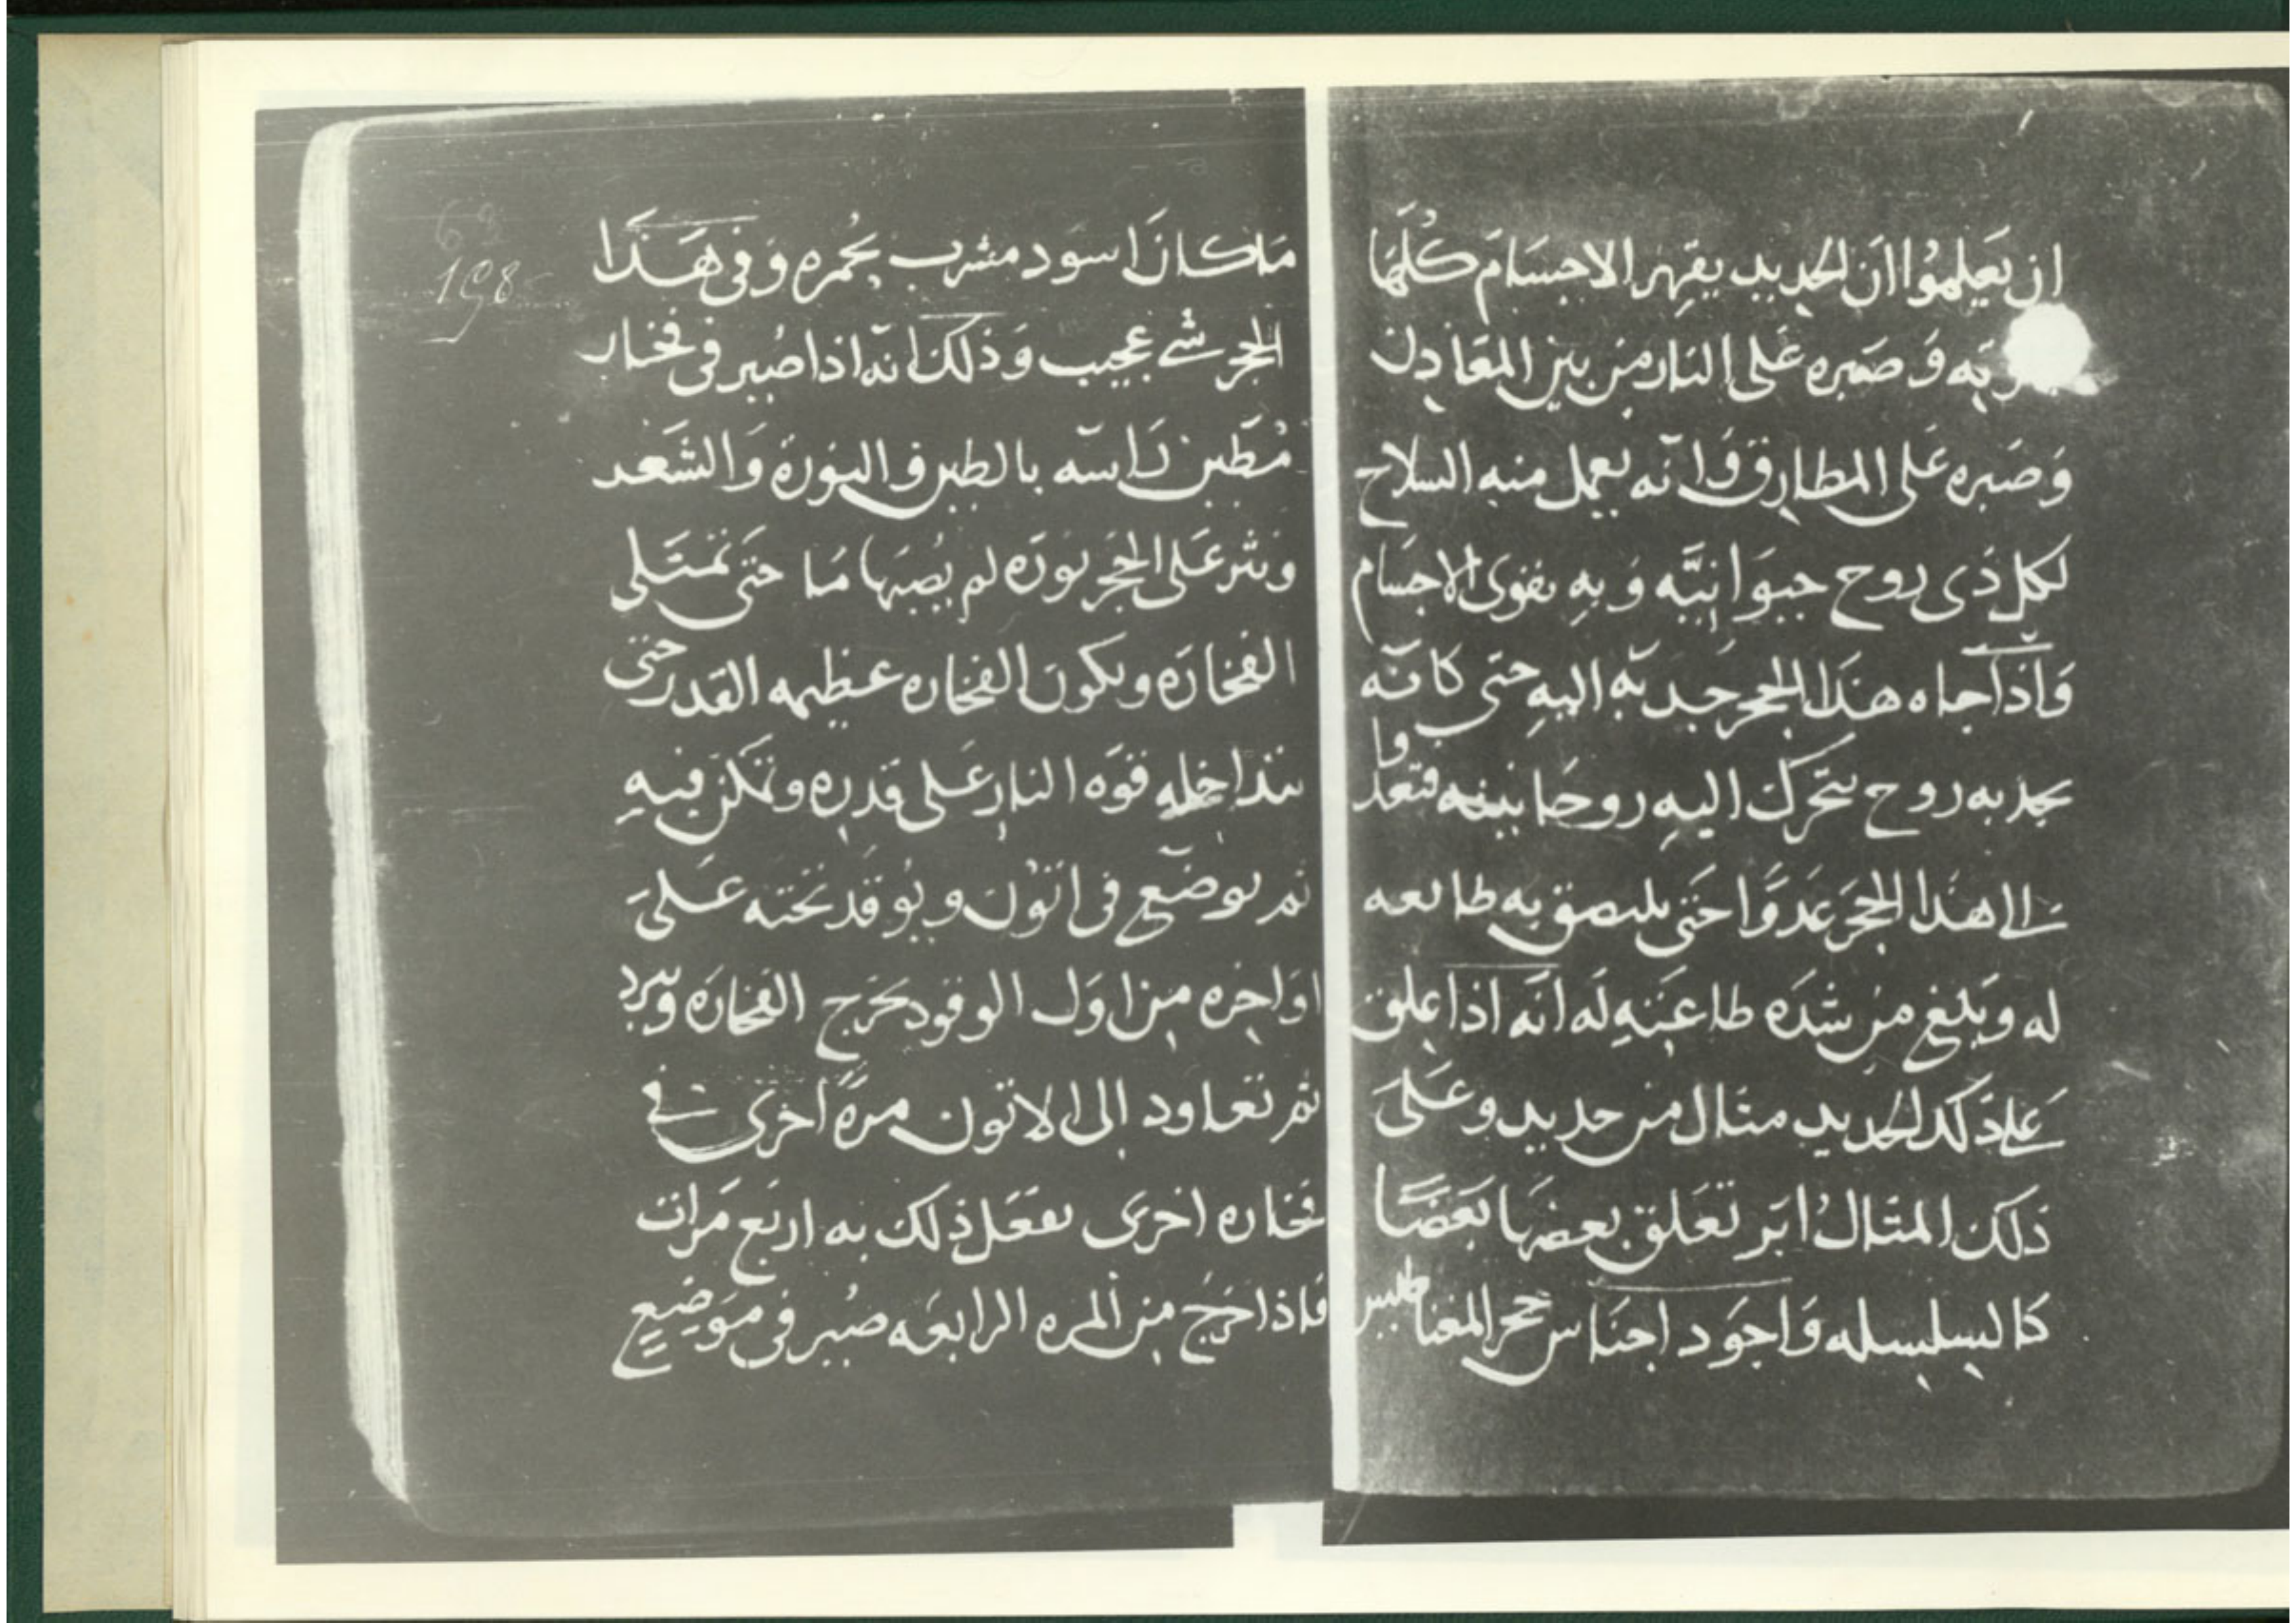 ان يَعلموُا انَ الحديد يقهر الاجسَامَ كُلهَا
به وَ صَبره عَلى النار من بين المعَادِن
وَ صَبره عَلى المطارق وَانه يعمل منه السلاح
لكل ذَى روح حيوَانيَّه وَ بهِ يقوى الاجسَام
وَاذا جاه هذَا الحجر جدبه اليهِ حتى كانه
يجد به روح يتحرك اليهِ روحَانينه فتغدوا
الى هذا الحجَر عَدوًّا حَتى يلتصق به طايعه
له وَيَبلغ من شدَه طاعَتهِ لَه انه اذا علق
عَلى ذَلك الحديد مثال من حديد وعَلىَ
ذلك المثَال ابَر تعَلق بعضهَا بَعَضًا
كالسلسله وَاجوَد اجنَاس حجر المغناطيس
مَا كانَ اسوَد مشرب بحُمره وَفى هَذَا
الحجر شى عجيب وَذلك انه اذا صُير فى فخار
مُطَين رَاسه بالطين و النورَة وَالشعَر
ونثر عَلى الحجَر نورَه لم يُصبهَا مَا حَتى تَمتَلى
الفخارَه ويكون الفخاره عظيمه القدر حتى
يتداخله قوَه النار عَلى قدره وتمكن فيهِ
ثم يوضع فى اتوُن ويُوقدَ تحَته عَلىَ
اوَاخره من اوَل الوقود يخرَج الفخارَه ويبرد
ثم تعَاود الى الاتون مرَّه اخرَى فى
فخاره اخرى يفعَل ذلك به اربَع مَرات
فاذا خرَج من المره الرابعَه صُير فى موَضِعٍ
198